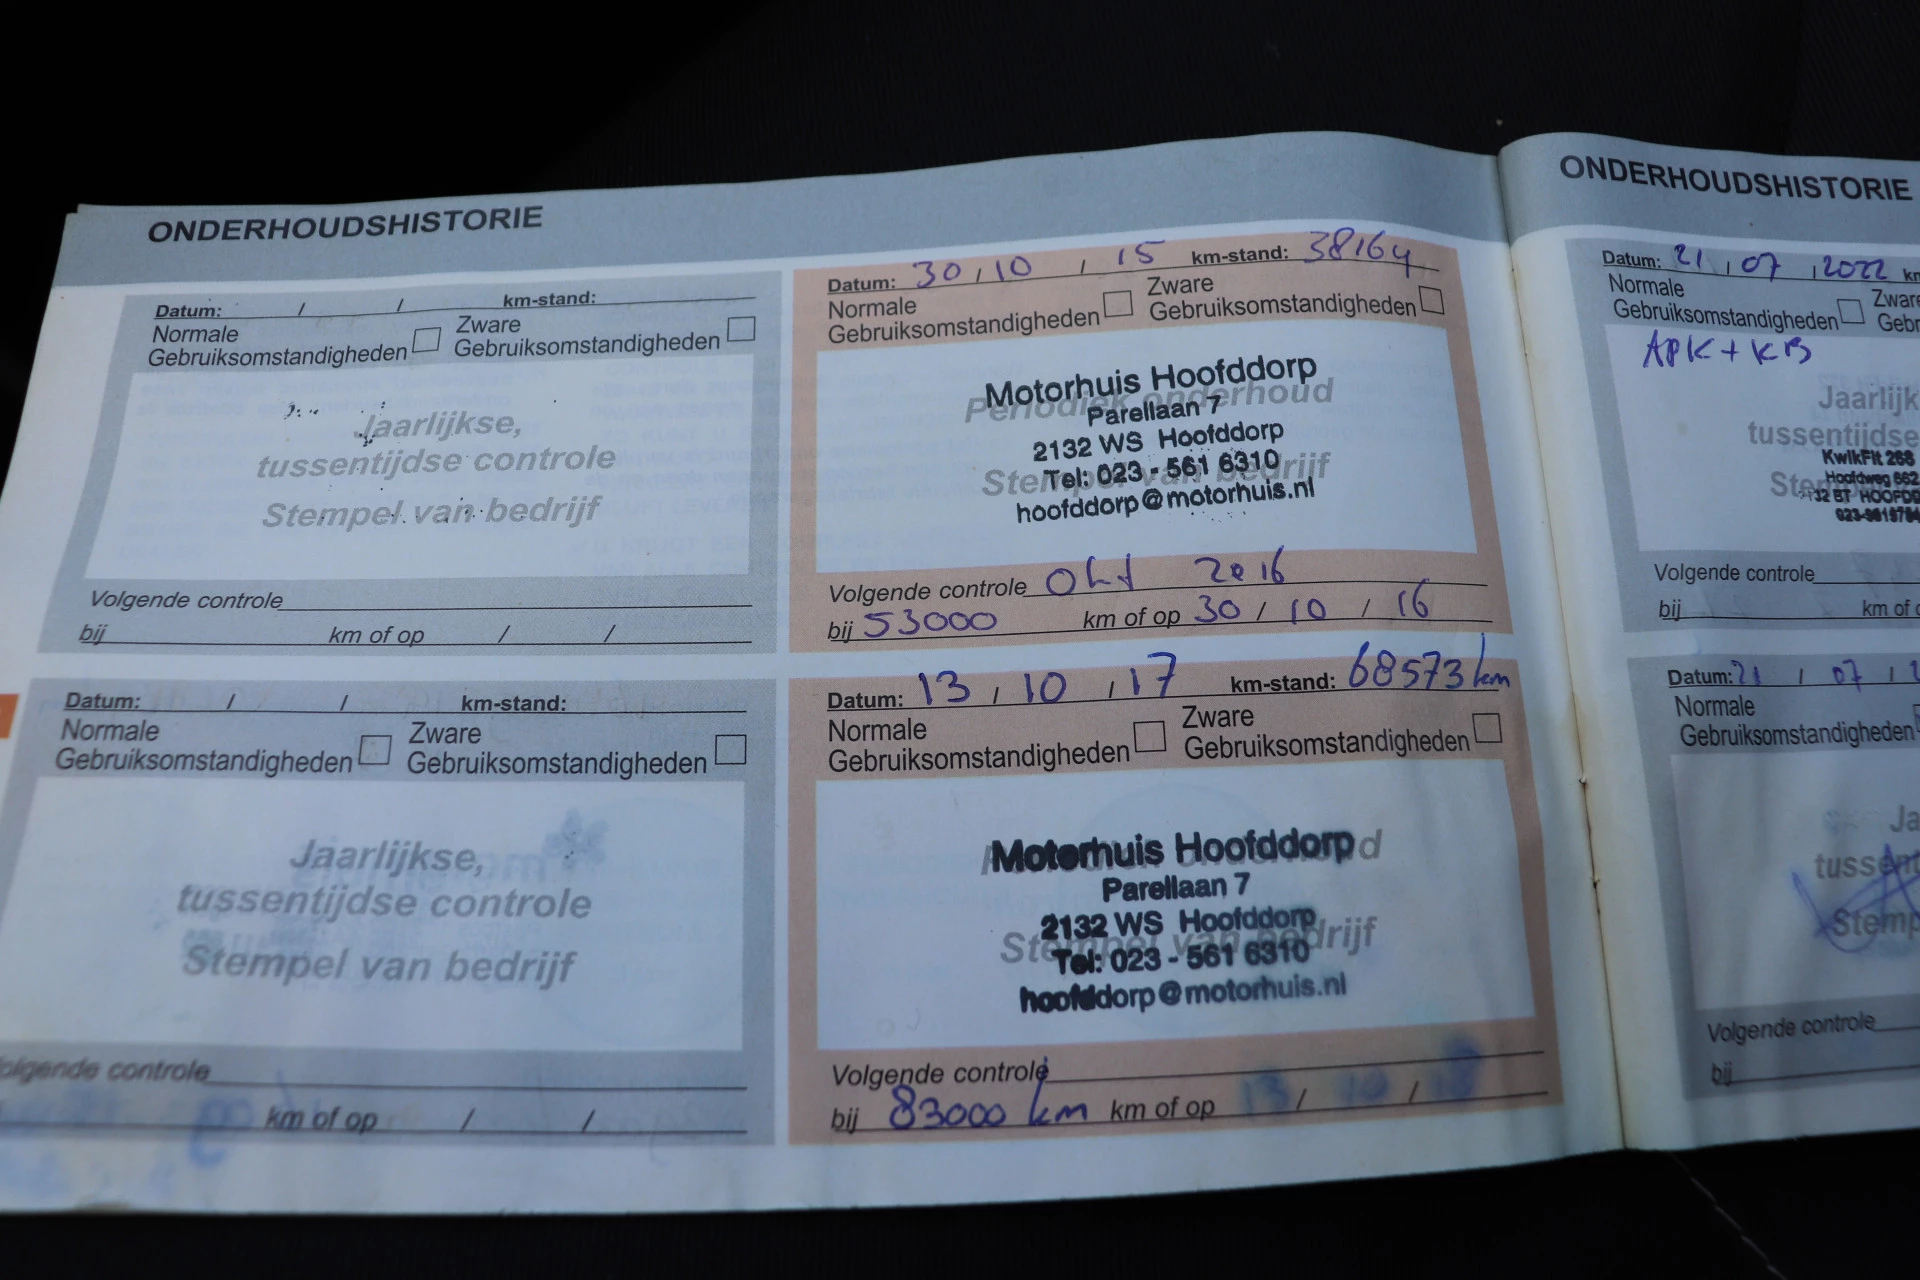 ONDERHOUDSHISTORIE
Datum: / / km-stand:
Normale
Gebruiksomstandigheden
Zware
Gebruiksomstandigheden
Jaarlijkse,
tussentijdse controle
Stempel van bedrijf
Volgende controle
bij km of op / /
Datum: / / km-stand:
Normale
Gebruiksomstandigheden
Zware
Gebruiksomstandigheden
Jaarlijkse,
tussentijdse controle
Stempel van bedrijf
olgende controle
km of op / /
Datum: 30 / 10 / 15 km-stand: 38164
Normale
Gebruiksomstandigheden
Zware
Gebruiksomstandigheden
Periodiek onderhoud
Stempel van bedrijf
Motorhuis Hoofddorp
Parellaan 7
2132 WS Hoofddorp
Tel: 023 - 561 6310
hoofddorp@motorhuis.nl
Volgende controle okt 2016
bij 53000 km of op 30 / 10 / 16
Datum: 13 / 10 / 17 km-stand: 68573 km
Normale
Gebruiksomstandigheden
Zware
Gebruiksomstandigheden
Stempel van bedrijf
Motorhuis Hoofddorp
Parellaan 7
2132 WS Hoofddorp
Tel: 023 - 561 6310
hoofddorp@motorhuis.nl
Volgende controle
bij 83000 km km of op 13 / 10 / 18
ONDERHOUDSHISTORIE
Datum: 21 / 07 / 2022 km
Normale
Gebruiksomstandigheden
Zware
Gebr
APK + KB
Jaarlijk
tussentijdse
KwikFit 268
Hoofdweg 662
HOOFDD
Volgende controle
bij km of o
Datum: 21 / 07 / 2
Normale
Gebruiksomstandigheden
Ja
tussent
Stemp
Volgende controle
bij